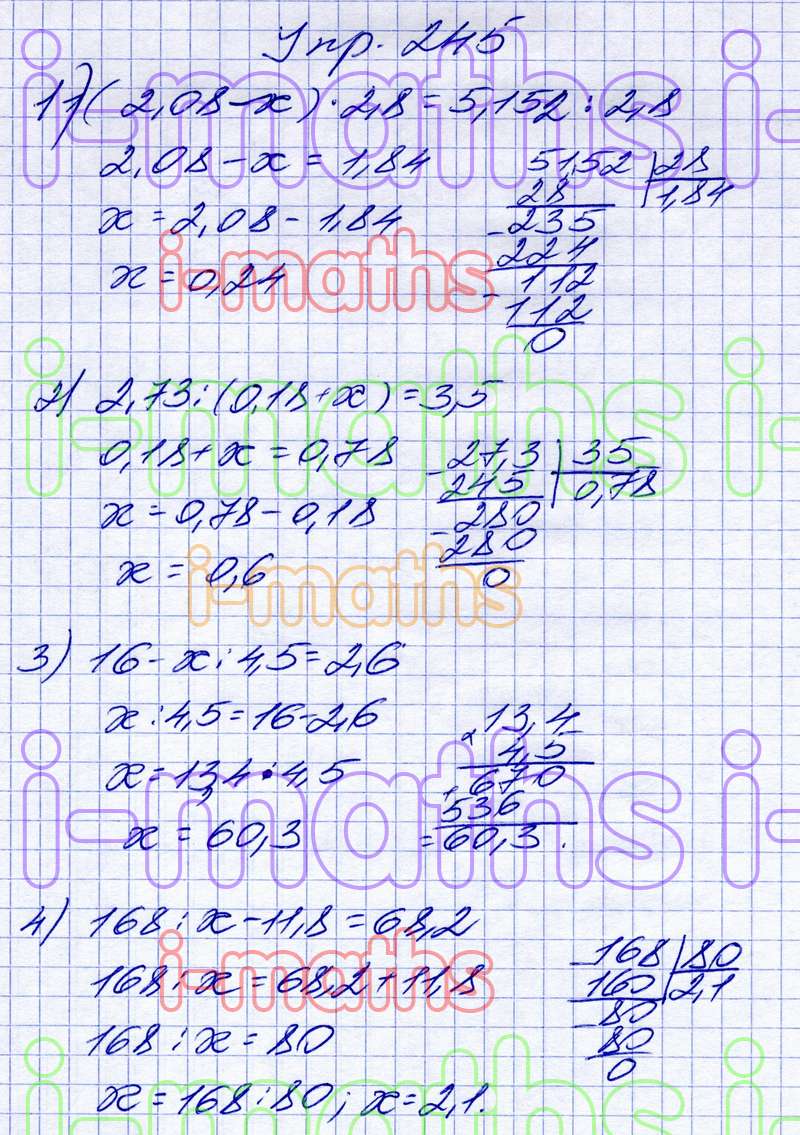 Упр. 245
1) (2,08-x)·2,8=5,152:2,8
2,08-x=1,84
51,52 | 28
28 | 1,84
x=2,08-1,84
-235
224
x=0,24
-112
112
0
2) 2,73:(0,18+x)=3,5
0,18+x=0,78
-27,3 | 35
245 | 0,78
x=0,78-0,18
-280
280
x=0,6
0
3) 16-x:4,5=2,6
x:4,5=16-2,6
x=13,4·4,5
x=60,3
13,4
x 4,5
670
+536
=60,3.
4) 168:x-11,8=68,2
168:x=68,2+11,8
168:x=80
x=168:80; x=2,1.
-168 | 80
160 | 2,1
-80
80
0
i-maths i-
i-maths
i-maths i-
i-maths
i-maths i-
i-maths
i-maths i-